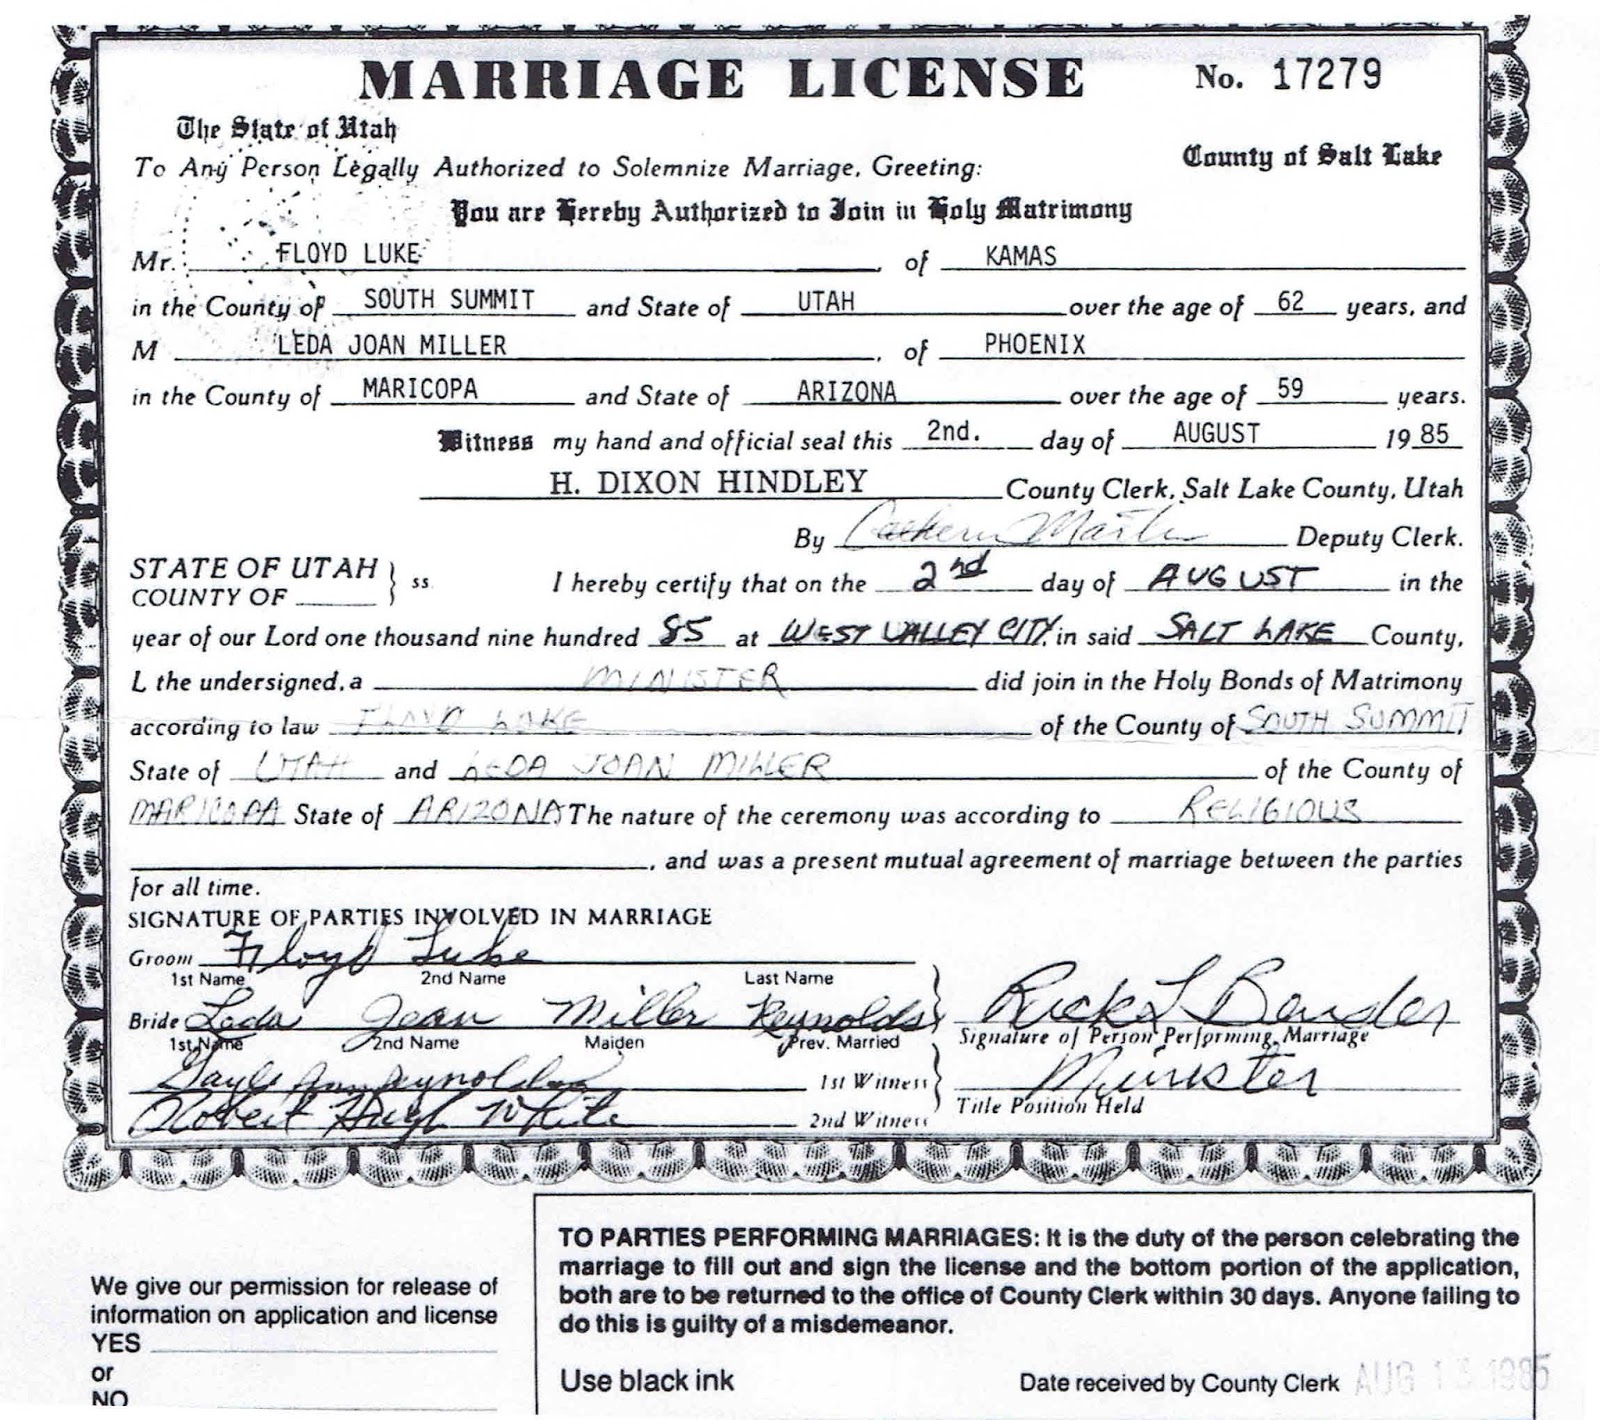 MARRIAGE LICENSE No. 17279
The State of Utah
County of Salt Lake
To Any Person Legally Authorized to Solemnize Marriage, Greeting:
You are Hereby Authorized to Join in Holy Matrimony
Mr. FLOYD LUKE, of KAMAS
in the County of SOUTH SUMMIT and State of UTAH over the age of 62 years, and
M LEDA JOAN MILLER, of PHOENIX
in the County of MARICOPA and State of ARIZONA over the age of 59 years.
Witness my hand and official seal this 2nd. day of AUGUST 19 85
H. DIXON HINDLEY County Clerk, Salt Lake County, Utah
By Martin Deputy Clerk.
STATE OF UTAH } ss. I hereby certify that on the 2nd day of AUGUST in the
COUNTY OF
year of our Lord one thousand nine hundred 85 at WEST VALLEY CITY, in said SALT LAKE County,
I, the undersigned, a MINISTER did join in the Holy Bonds of Matrimony
according to law FLOYD LUKE of the County of SOUTH SUMMIT
State of UTAH and LEDA JOAN MILLER of the County of
MARICOPA State of ARIZONA The nature of the ceremony was according to RELIGIOUS
, and was a present mutual agreement of marriage between the parties
for all time.
SIGNATURE OF PARTIES INVOLVED IN MARRIAGE
Groom Floyd Luke
1st Name 2nd Name Last Name
Bride Leda Joan Miller Reynolds
1st Name 2nd Name Maiden Prev. Married
Rick L Bender
Signature of Person Performing Marriage
Gayle Ann Reynolds 1st Witness
Robert Hugh White 2nd Witness
Minister
Title Position Held
We give our permission for release of
information on application and license
YES
or
NO
TO PARTIES PERFORMING MARRIAGES: It is the duty of the person celebrating the
marriage to fill out and sign the license and the bottom portion of the application,
both are to be returned to the office of County Clerk within 30 days. Anyone failing to
do this is guilty of a misdemeanor.
Use black ink
Date received by County Clerk AUG 13 1985